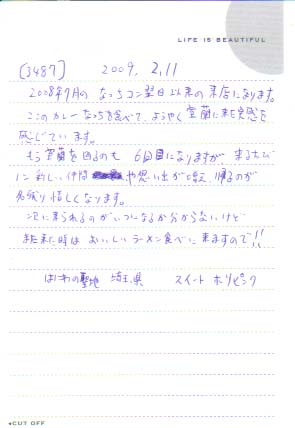 LIFE IS BEAUTIFUL
[3487] 2009. 2.11
2008年9月の なっちコン翌日以来の来店になります。
このカレーなっちを食べて、ようやく室蘭に来た実感を
感じています。
もう室蘭を回るのも 6回目になりますが、来るたび
に新しい仲間 や思い出が増え 帰るのが
名残り惜しくなります。
次に来られるのがいつになるか分からないけど
また来た時は おいしいラーメン食べに来ますので!!
はにわの聖地 埼玉県 スイート ホリピンク
◂CUT OFF